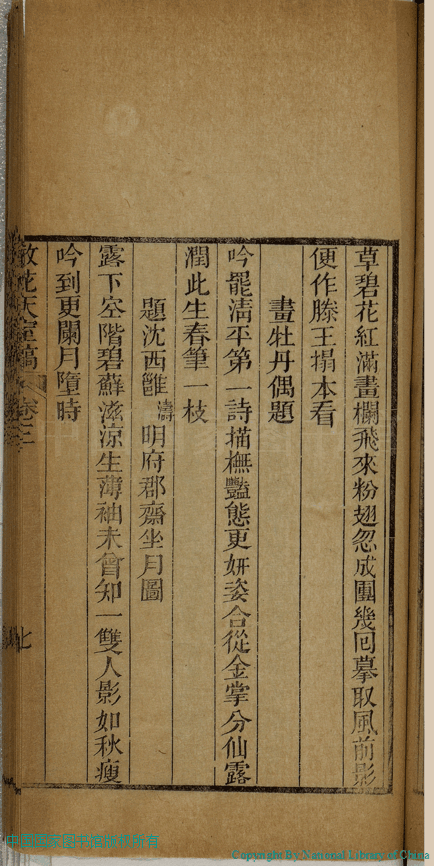 草碧花紅滿畫欄飛來粉翅忽成團幾回摹取風前影
便作滕王搨本看
畫牡丹偶題
吟罷清平第一詩描橅豔態更妍姿合從金掌分仙露
潤此生春筆一枝
題沈西雝濤明府郡齋坐月圖
露下空階碧蘚滋涼生薄袖未曾知一雙人影如秋瘦
吟到更闌月墮時
散花天室稿 卷三
七
Copyright By National Library of China